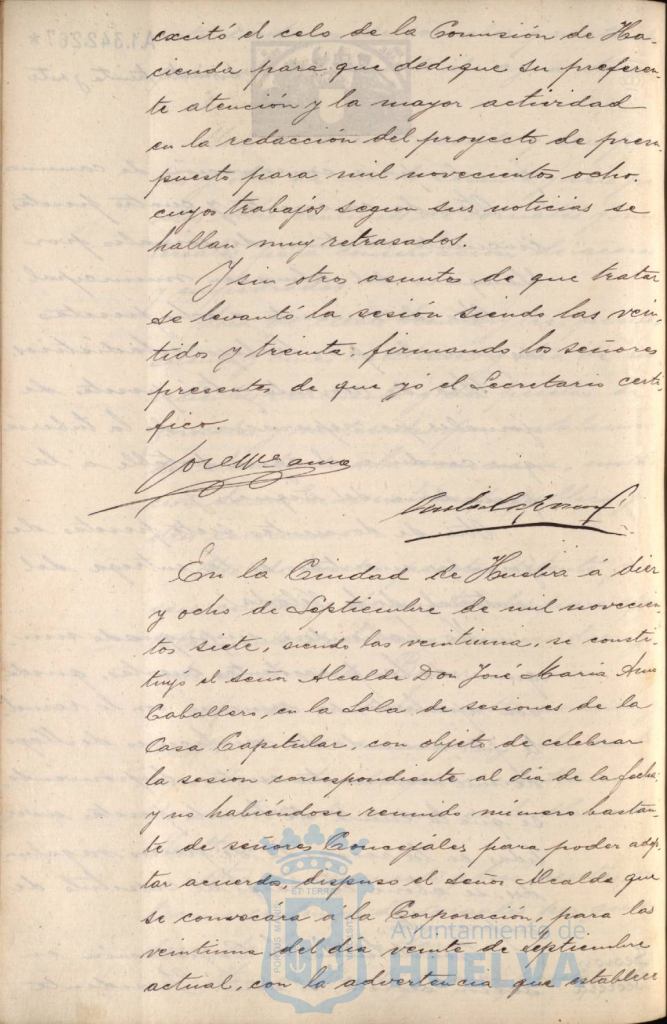 excitó el celo de la Comisión de Ha-
cienda para que dedique su preferen-
te atención y la mayor actividad
en la redacción del proyecto de presu-
puesto para mil novecientos ocho.
cuyos trabajos segun sus noticias se
hallan muy retrasados.
Y sin otros asuntos de que tratar
se levantó la sesión siendo las vein-
tidos y treinta, firmando los señores
presentes de que yó el Secretario certi-
fico.
José Mª
En la Ciudad de Huelva á diez
y ocho de Septiembre de mil novecien-
tos siete, siendo las veintiuna, se consti-
tuyó el señor Alcalde Don José Maria
Caballero, en la Sala de sesiones de la
Casa Capitular, con objeto de celebrar
la sesion correspondiente al dia de la fecha;
y no habiéndose reunido número bastan-
te de señores Concejales para poder adop-
tar acuerdo, dispuso el señor Alcalde que
se convocára á la Corporación, para las
veintiuna del día veinte de septiembre
actual, con la advertencia que establece
PORTUS MARIS ET TERRE CUSTODIA
Ayuntamiento de
HUELVA